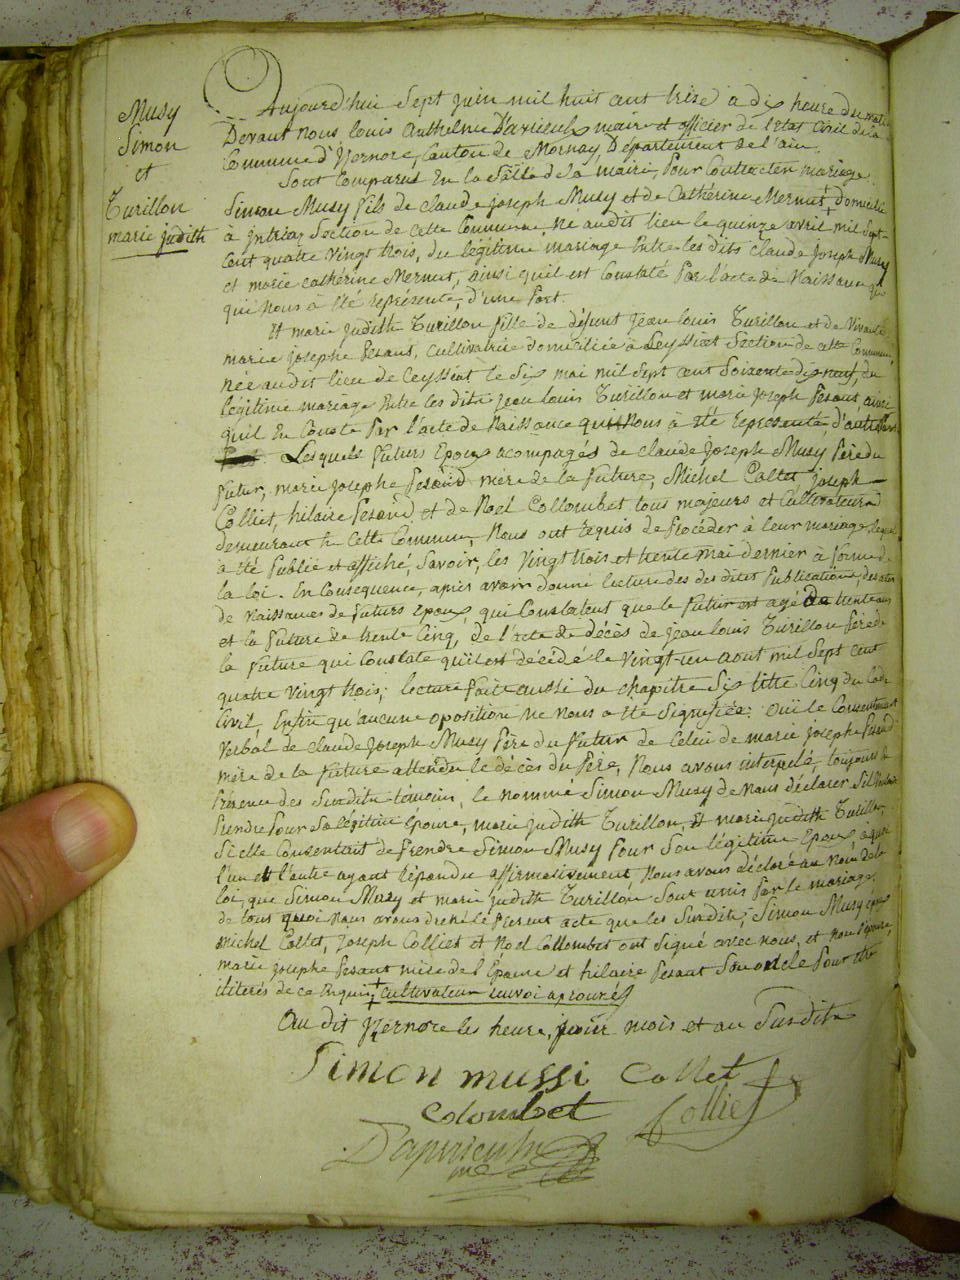 Musy
Simon
et
Turillon
marie judith
Aujourd'hui Sept juin mil huit cent treize à dix heure du matin
Devant nous louis Anthelme maire et officier de l'Etat Civil de la
Commune d'Yzernore, Canton de Mornay, Département de l'ain.
Sont Comparus En la Salle de la mairie, Pour Contracter mariage
Simon Musy fils de claude Joseph Musy et de Cathérine Mermet + domicilié
à Intriaz Section de cette Commune, Né audit lieu le quinze avril mil Sept
Cent quatre Vingt trois, du légitime mariage Entre les dits Claude Joseph Musy
et marie Cathérine Mermet, ainsi quil est Constaté Par l'acte de Naissance
qui Nous à été représenté, d'une Part.
Et marie judith Turillon fille de défunt jean louis Turillon et de Vivante
marie josephe Pesant, Cultivatrice domiciliée à Leyssiat Section de cette Commune,
Née audit lieu de Ceyssiat le Six mai mil Sept cent Soixente dix neuf, du
légitime mariage Entre les dits jean louis Turillon et marie Joseph Pesant, ainsi
quil En Conste Par l'acte de Naissance qui Nous à été représenté, d'autre Part
Lesquels Futurs Epoux acompagés de claude Joseph Musy Père du
Futur, marie josephe Pesand, mère de la Future, Michel Collet, joseph
Colliet, hilaire Pesand et de Noël Collombet tous majeurs et Cultivateurs
demeurant En Cette Commune, Nous ont requis de Procéder à leur mariage, lequel
à été Publié et affiché, Savoir, les Vingt trois et trente mai dernier à forme de
la loi. En Conséquence, après avoir donné lecture des des dites Publications, des actes
de Naissances de Futurs Epoux, qui Constatent que le Futur est agé de trente ans
et la Future de trente Cinq, de l'acte de décès de jean louis Turillon Père de
la Future qui Constate quil est décédé le Vingt un aout mil Sept Cent
quatre Vingt trois; lecture Faite aussi du chapitre Six titre Cinq du Code
Civil, Enfin qu'aucune oposition Ne Nous a été Signifiée. Oui le Consentement
Verbal de Claude Joseph Musy Père du Futur, de Celui de marie josephe Pesand
mère de la Future attendu le décès du Père, Nous avons interpelé, toujours En
Présence des Susdits témoins, le nommé Simon Musy de Nous déclarer S'il Vouloit
Prendre Pour Sa légitime Epouse, marie judith Turillon, Et marie judith Turillon,
Si elle Consentait de Prendre Simon Musy Pour Son légitime Epoux, à quoi
l'un et l'autre ayant répondu affirmativement, Nous avons déclaré au Nom de la
loi, que Simon Musy et marie judith Turillon Sont unis Par le mariage,
de tous quoi Nous avons dressé le Présent acte que les Susdits, Simon Musy époux
Michel Collet, Joseph Colliet et Noël Collombet ont Signé avec nous, et Non l'épouse,
marie josephe Pesant mère de l'Epouse et hilaire Pesant Son oncle Pour être
iliterés de ce Requis + Cultivateur renvoi aprouvé
Au dit Yzernore les heure, jour mois et an Susdits
Simon mussi Collet
Colombet Colliet